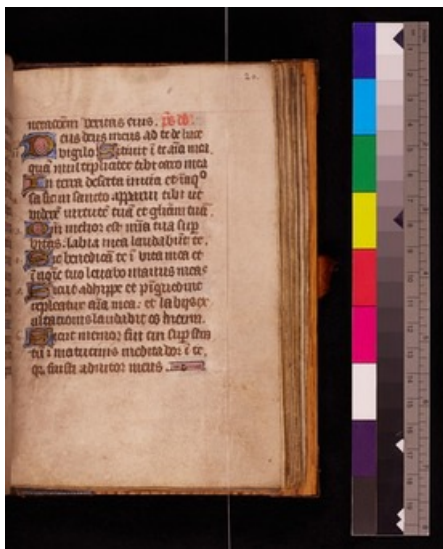 20.
neracõm veritas eius. p̃s ds̃.
Deus deus meus ad te de luce
vigilo. Sitiuit ĩ te aĩa mea
quã multipliciter tibi caro mea
In terra deserta inuia et ĩaq°
sa sic in sancto apparui tibi ut
viderẽ uirtutẽ tuã et gl̃iam tuã.
Qm̃ melior est mĩa tua sup̃
vitas. labia mea laudabũt te.
Sic benedicã te ĩ vita mea et
ĩ noĩe tuo leuabo manus meas
Sicut adhipe et pĩguedine
repleatur aĩa mea: et labijs ex
ultationis laudabit os meum.
Sicut memor fui tui sup̃ strm̃
tũ ĩ matutinis meditabor ĩ te.
q̃ fuisti adiutor meus.